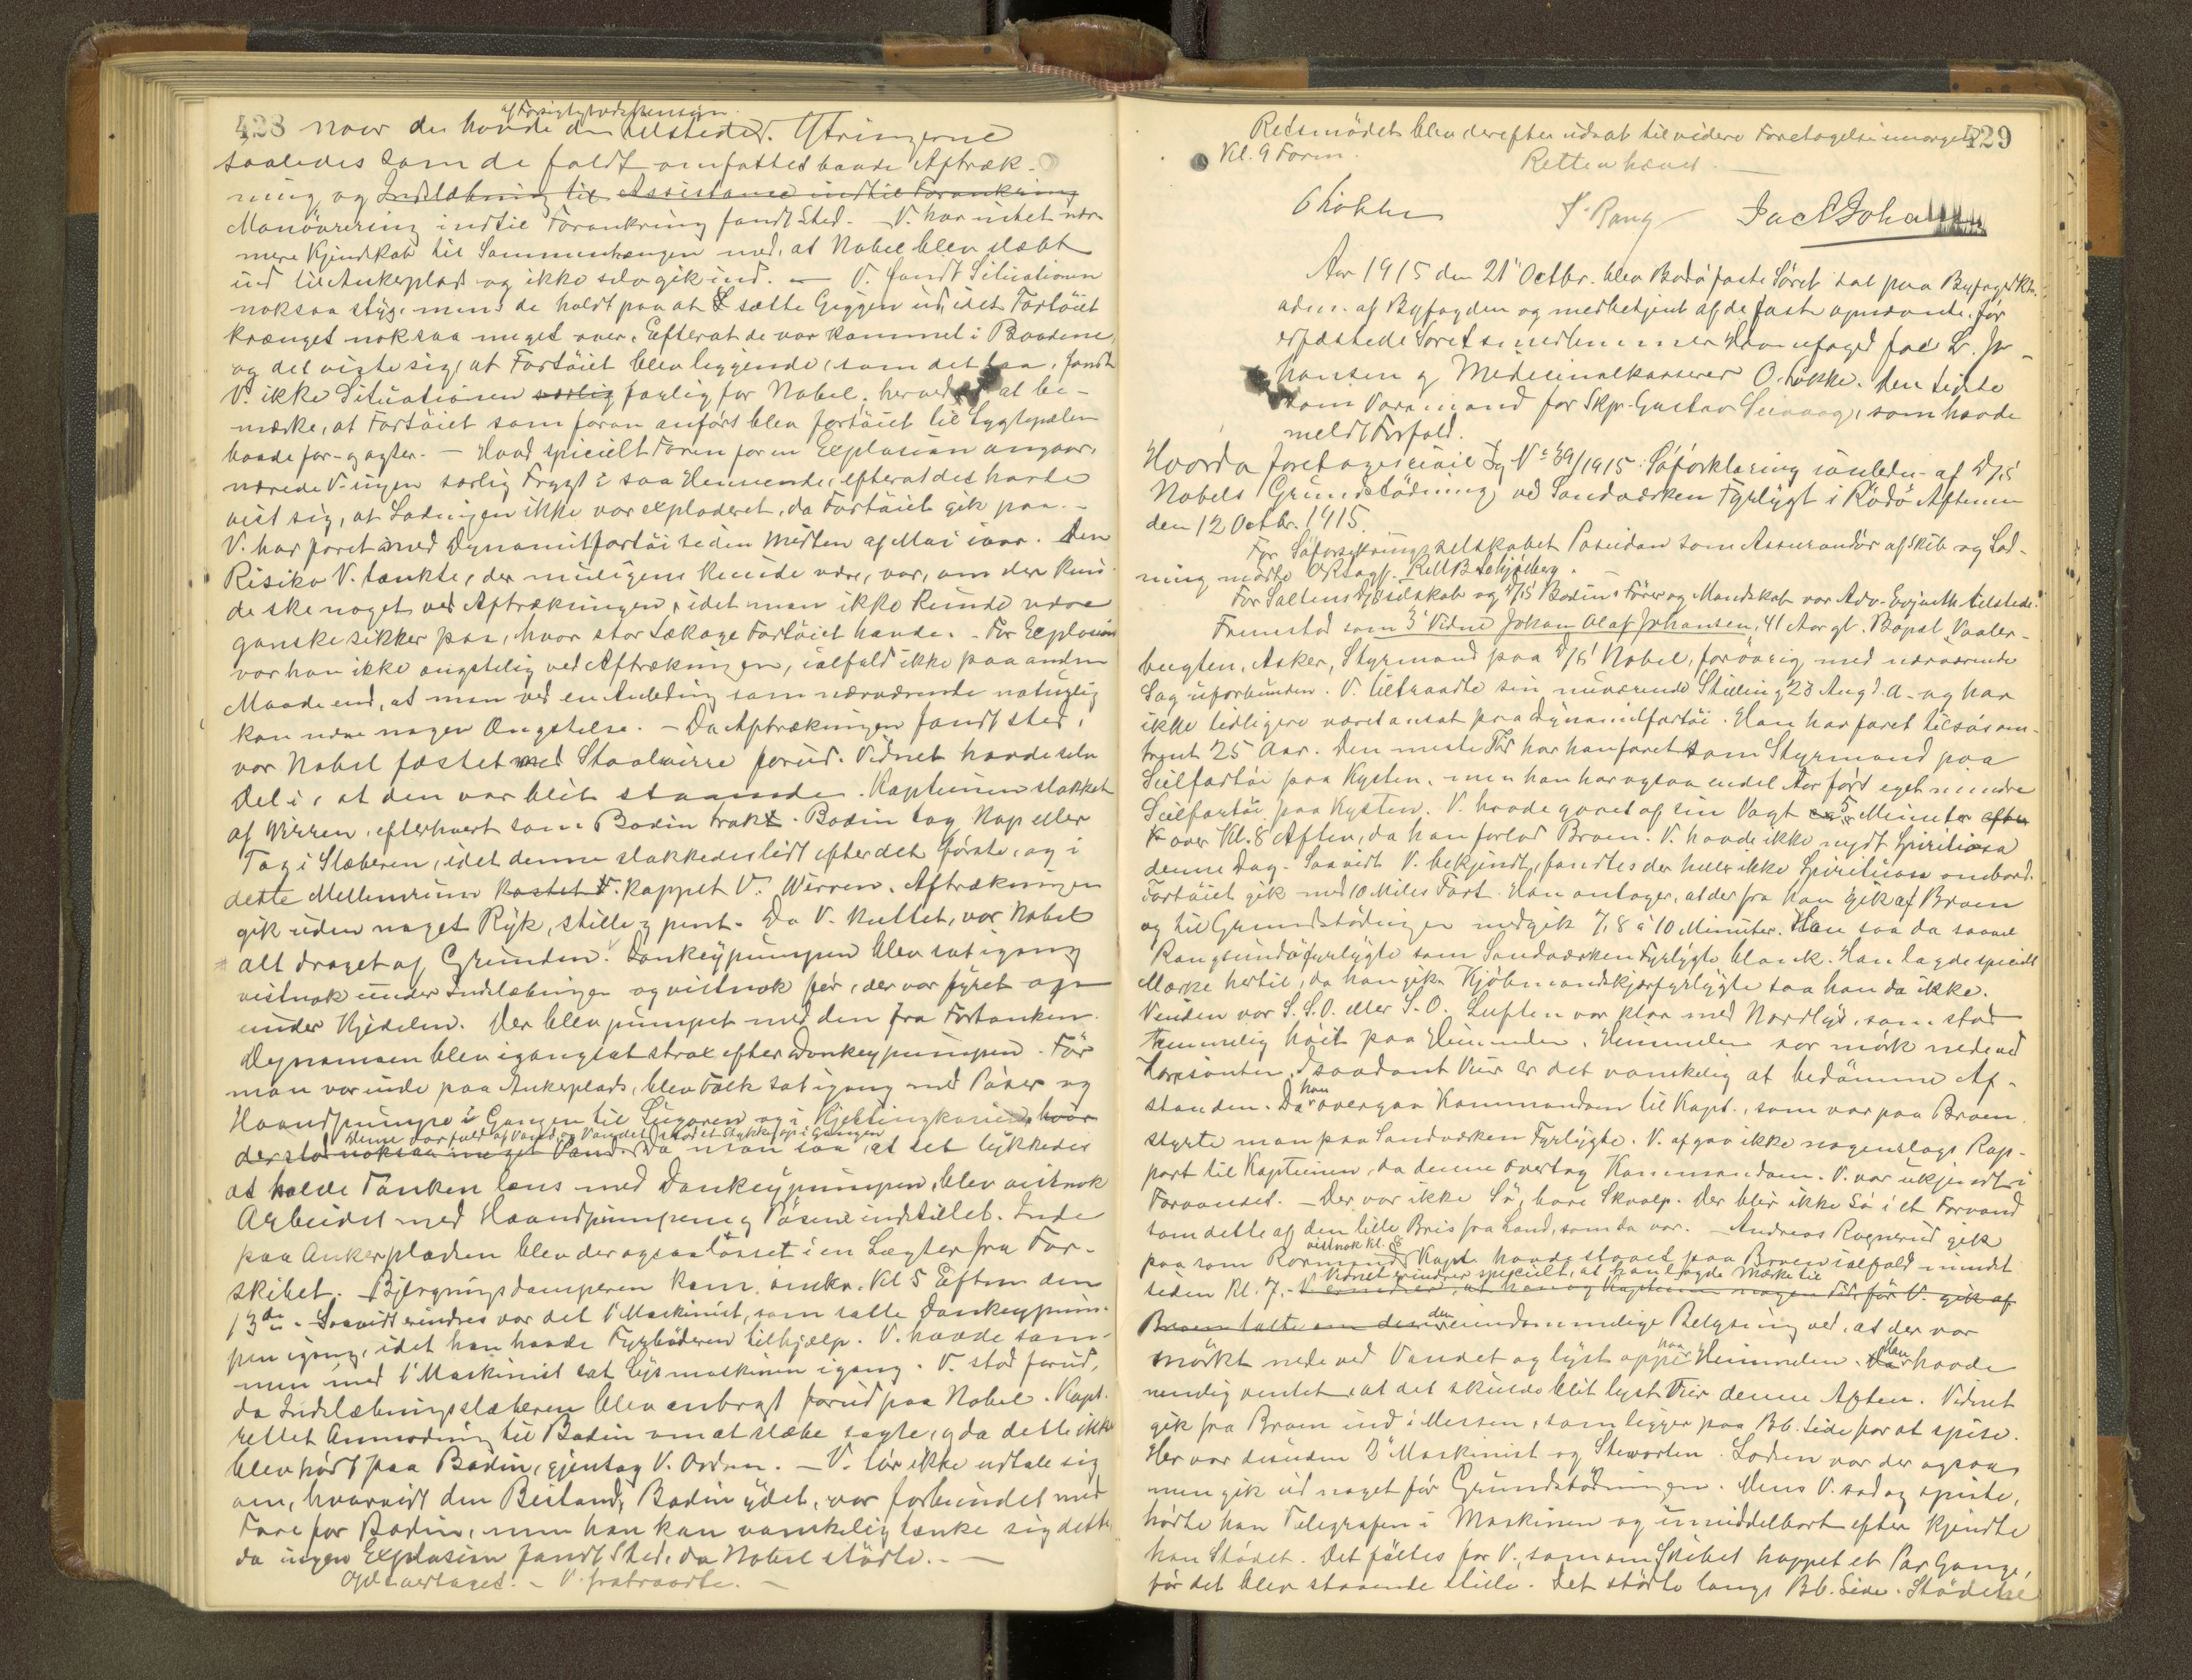 428
af Forsigtighedshensyn
naar de havde den tilstede. Ytringerne
saaledes som de faldt omfattet baade Aftræk-
ning og Indslæbning til Assistance indtil Forankring
Manøvrering indtil Forankring fandt Sted. - V. har intet nær-
mere Kjendskab til Sammenhengen med, at Nobel blev slæbt
ind til Ankerplads og ikke selv gik ind. - V. fandt Situationen
noksaa styg, mens de holdt paa at sætte Giggen ud, idet Fartøiet
krænget noksaa meget over. Efterat de var kommet i Baadene
og det viste sig, at Fartøiet blev liggende, som det laa, fandt
V. ikke Situationen særlig farlig for Nobel, herved at be-
mærke, at Fartøiet som foran anført blev fortøiet til Lygtepælen
baade for- og agter. - Hvad specielt Faren for en Explosion angaar,
nærede V. ingen særlig Frygt i saa Henseende, efterat det havde
vist sig, at Ladningen ikke var exploderet, da Fartøiet gik paa. -
V. har faret med Dynamitfartøi siden Midten af Mai iaar. Den
Risiko V. tænkte, der muligens kunde være, var, om der kun-
de ske noget ved Aftrækningen, idet man ikke kunde være
ganske sikker paa, hvor stor Lækage Fartøiet havde. - For Explosion
var han ikke ængstelig ved Aftrækningen, ialfald ikke paa anden
Maade end, at man ved en Ladning som nærværende naturlig
kan nære nogen Ængstelse. - Da Aftrækningen fandt sted,
var Nobel fæstet med Staalwire forud. Vidnet havde selv
Del i, at den var blit staaende. Kapteinen slakket
af Wirren, efterhvert som Bodin trak. Bodin tog Kap eller
Tag i Slæberen, idet denne slakkedes lidt efter det første, og i
dette Mellemrum kastet V. kappet V. Wirren. Aftrækningen
gik uden noget Ryk, stille og pent. Da V. kuttet, var Nobel
alt draget af Grunden. Donkeypumpen blev sat igang
vistnok under Indslæbningen og vistnok før, der var fyret op
under Kjedelen. Der blev pumpet med den fra Fortanken.
Dynamoen blev igangsat strax efter Donkeypumpen. Før
man var inde paa Ankerplads, blev Folk sat igang med Pøser og
Haandpumpe i Gangen til Lugaren og i Kjettingkassen, hvor
denne var fuld af Vand, og Vandet stod et Stykke op i Gangen
der stod noksaa meget Vand. Da man saa, at det lykkedes
at holde Tanken læns med Donkeypumpen, blev vistnok
Arbeidet med Haandpumpen og Pøsene indstillet. Inde
paa Ankerpladsen blev der ogsaa losset i en Lægter fra For-
skibet. Bjergningsdamperen kom omkr. Kl 5 Efterm den
13de. - Saavidt erindres var det 1' Maskinist, som satte Donkeypum-
pen igang, idet han havde Fyrbøderen tilhjælp. V. havde sam-
men med 1' Maskinist sat Lysmaskinen igang. V. stod forud,
da Indslæbningsslæberen blev anbragt forud paa Nobel. Kapt.
rettet Anmodning til Bodin om at slæbe sagte, og da dette ikke
blev hørt paa Bodin, gjentog V. Orden. - V. tør ikke udtale sig
om, hvorvidt den Bistand, Bodin ydet, var forbundet med
Fare for Bodin, men han kan vanskelig tænke sig dette,
da ingen Explosion fandt Sted, da Nobel stødte. -
Oplæst vedtaget. - V. fratraadte. -
429
Retsmødet blev derefter udsat til videre Foretagelse imorgen
Kl. 9 Form.
Retten hævet. -
O Lökke
S. Rang
Jac L Johansen
Aar 1915 den 21' Octbr. blev Bodø faste Søret sat paa Byfogdkt.
adm. af Byfogden og medbetjent af de fast opnævnte, før
edfæstede Søretsmedlemmer Havnefoged Jac L. Jo-
hansen og Medicinalkasserer O. Løkke. Den sidste
som Varamand for Skpr. Gustav Seivaag, som havde
meldt Forfald.
Hvorda foretages civil Sg No 39/1915: Søforklaring i anledn. af D/S
Nobels Grundstødning ved Sandværken Fyrlygt i Rødø Aftenen
den 12 Octbr. 1915.
For Søforsikringsselskabet Poseidon som Assurandør af Skib og Lad-
ning mødte ORsagf. Kjelsberg.
For Saltens D/selskab og D/S Bodins Fører og Mandskab var Adv. Evjenth tilstede.
Fremstod som 3' Vidne Johan Olaf Johansen, 41 Aar gl. Bopæl Vaaler-
bugten, Asker, Styrmand paa D/S Nobel, forøvrig med nærværende
Sag uforbunden. V. tiltraadte sin nuværende Stilling 23 Aug. d. A. og har
ikke tidligere været ansat paa dynamitfartøi. Han har faret tilsøs om-
trent 25 Aar. Den meste Tid har han faret som Styrmand paa
Seilfartøi paa Kysten, men han har ogsaa endel Aar ført eget mindre
Seilfartøi paa Kysten. V. havde gaaet af sin Vagt ca 5 Minuter efter
over Kl. 8 Aften, da han forlod Broen. V. havde ikke nydt Spirituosa
denne Dag. Saavidt V. bekjendt, fandtes der heller ikke Spirituosa ombord.
Fartøiet gik med 10 Miles Fart. Han antager, at der fra han gik af Broen
og til Grundstødningen medgik 7, 8 à 10 Minuter. Han saa da saavel
Rangsundøfyrlygte som Sandværken Fyrlygte blank. Han lagde specielt
Mærke hertil, da han gik. Kjøbmandskjærfyrlygte saa han da ikke.
Vinden var S.S.O. eller S.O. Luften var klar med Nordlys, som stod
temmelig høit paa Himmelen. Himmelen var mørk nede ved
Horisonten. I saadant Veir er det vanskelig at bedømme Af-
standen. Da han overgav Kommandoen til Kapt., som var paa Broen
styrte man paa Sandværken Fyrlygte. V. afgav ikke nogenslags Rap-
port til Kapteinen, da denne overtog Kommandoen. V. var ukjendt i
Farvandet. - Der var ikke Sø, bare Skvalp. Der blir ikke Sø i et Farvand
som dette af den lille Bris fra Land, som da var. - Andreas Rognerud gik
paa som Rormand vistnok kl. 8. Kapt. havde staaet paa Broen ialfald - mindst
siden Kl. 7. - Vidnet erindrer specielt, at han lagde Mærke til
V. erindrer, at han og Kapteinen nogen Tid før V. gik af
Broen talte om den den eiendommelige Belysning ved, at der var
mørkt nede ved Vandet og lyst oppe paa Himmelen. Han havde
nemlig ventet, at det skulde blit lyst Veir denne Aften. Vidnet
gik fra Broen ind i Messen, som ligger paa Bb. Side for at spise.
Her var desuden 2' Maskinist og Stewarten. Lodsen var der ogsaa
men gik ud noget før Grundstødningen. Mens V. sad og spiste,
hørte han Telegrafen i Maskinen og umiddelbart efter kjendte
han Stødet. Det føltes for V. som om Skibet hoppet et Par Gange,
før det blev staaende stille. Det stødte langs Bb. Side. Stødene